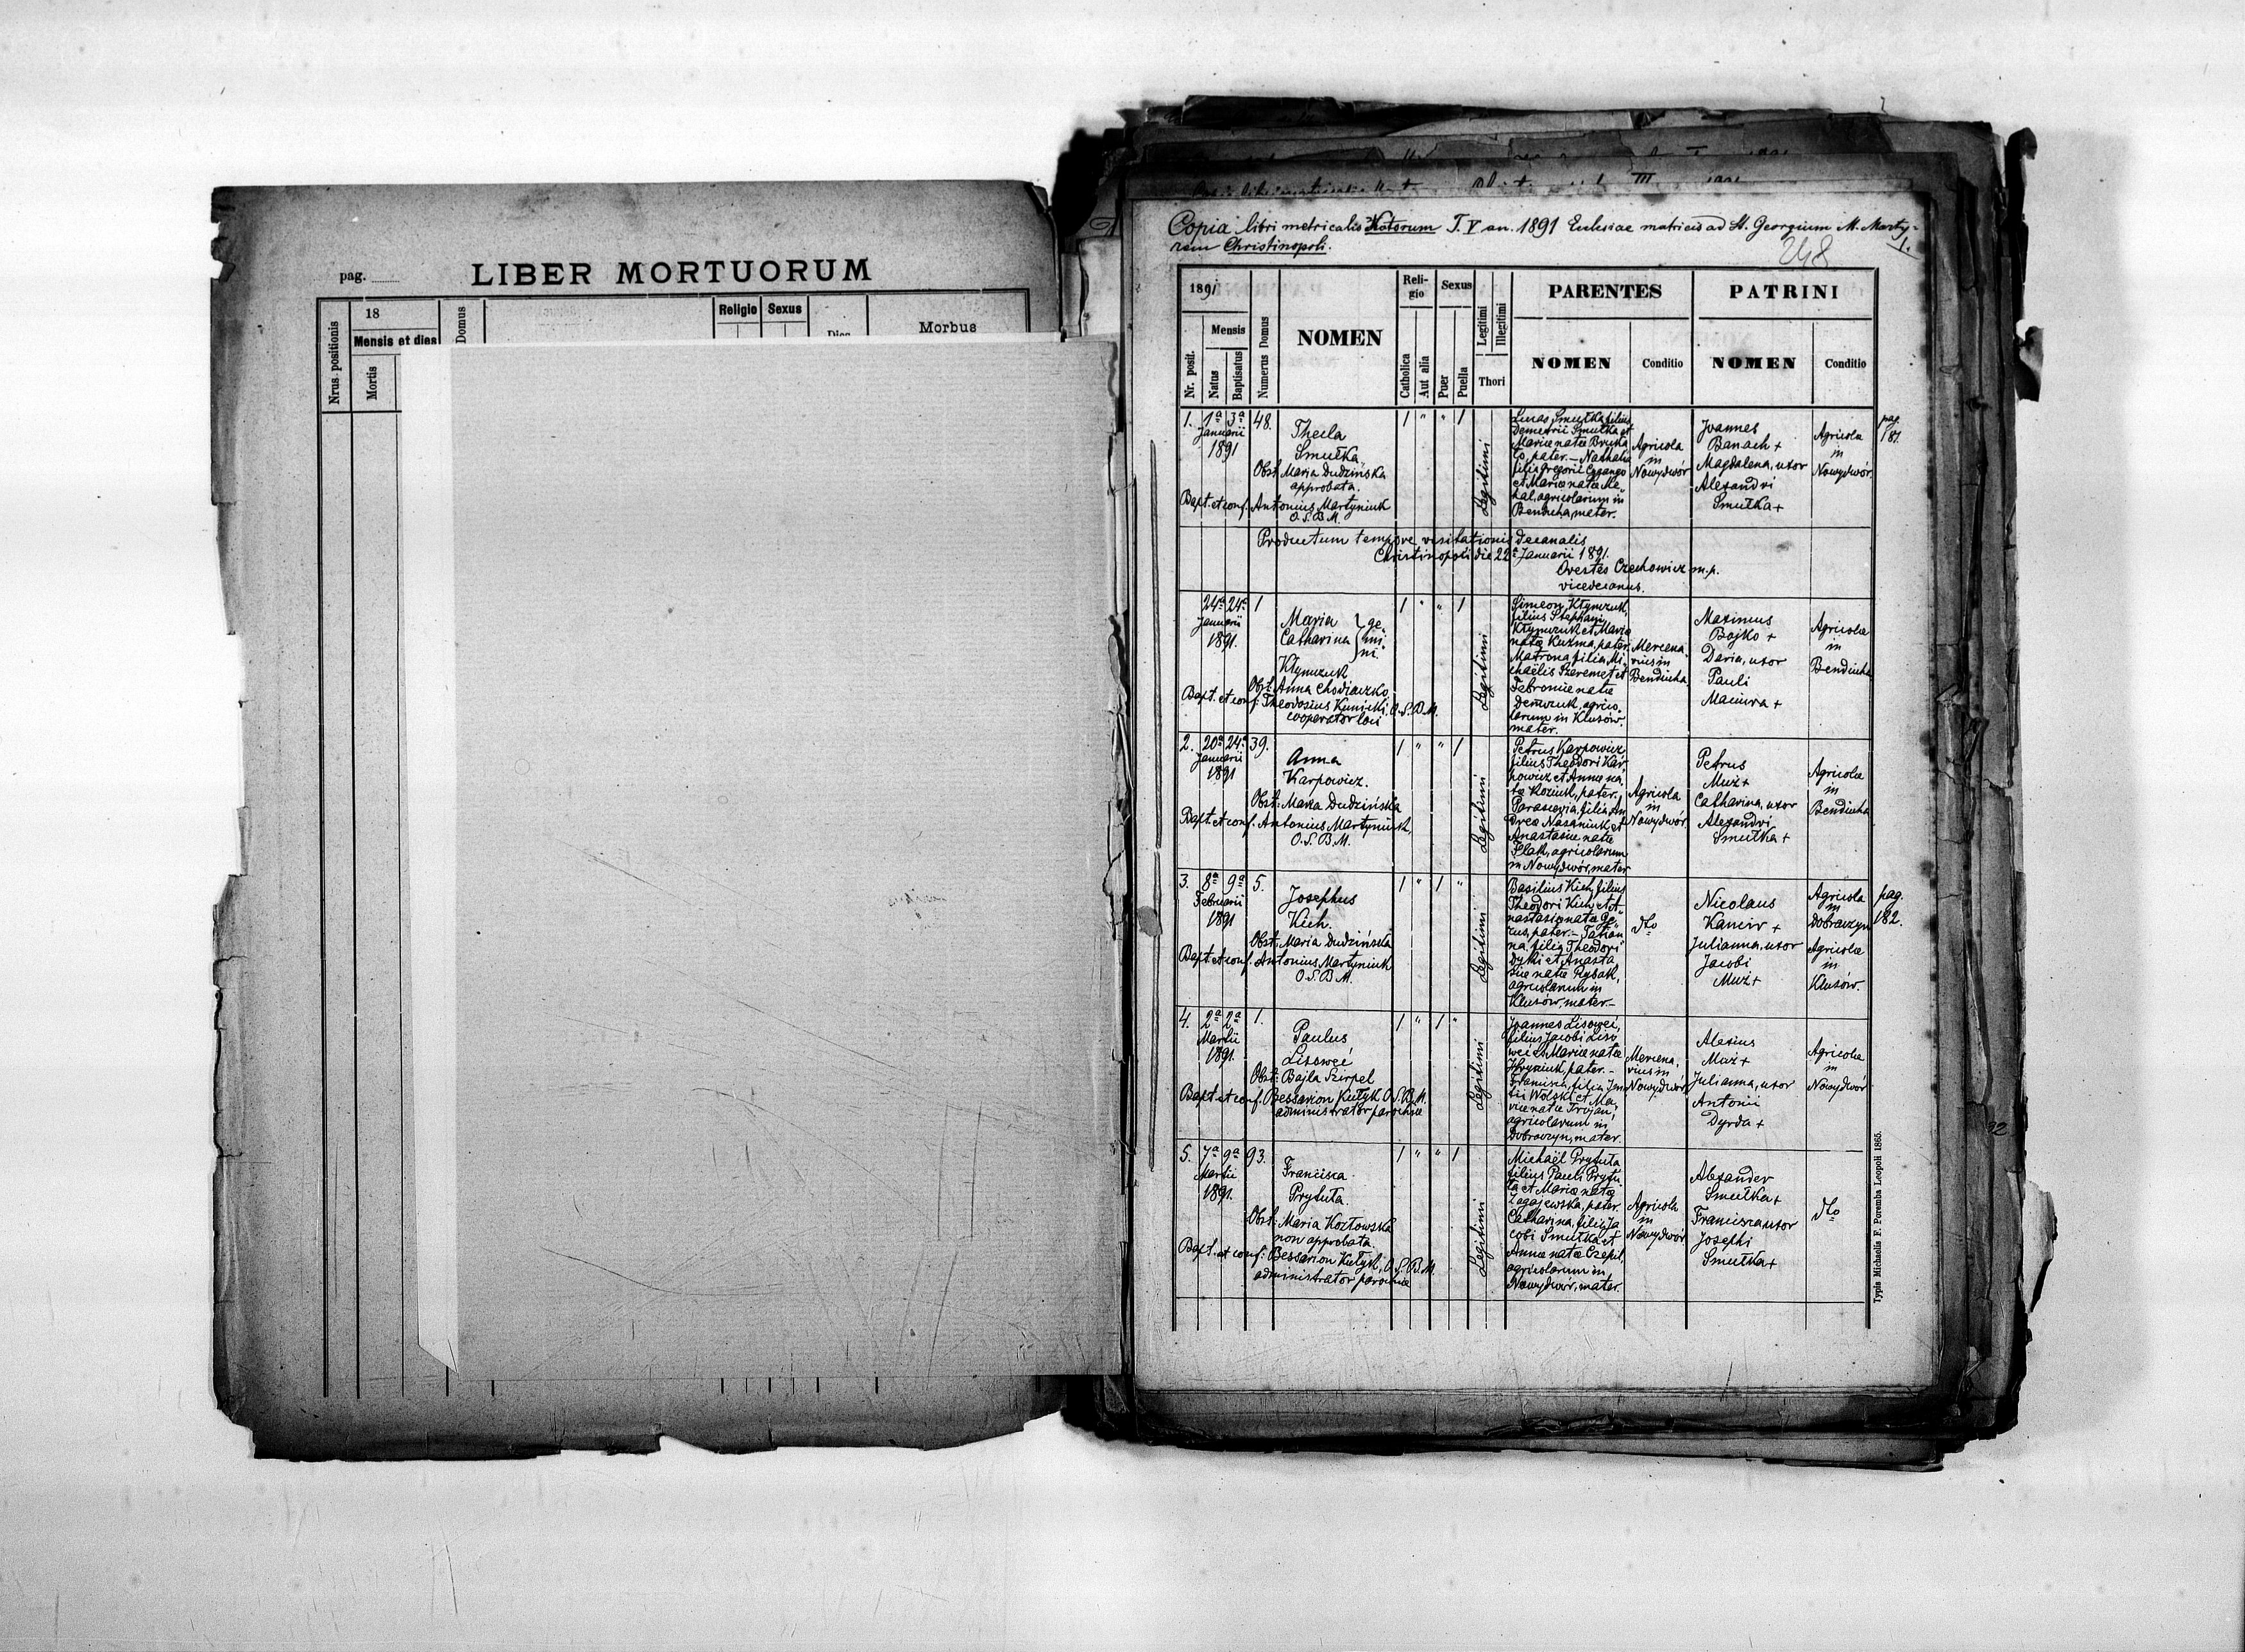 pag.
LIBER MORTUORUM
Nrus positionis
18
Mensis et dies
Mortis
Domus
Religio
Sexus
Dies
Morbus
Copia libri metricalis Natorum T. V an. 1891 Ecclesiae matricis ad St. Georgium M. Marty-
rem Christinopoli.
1.
248
1891
Nr. posit.
Mensis
Natus
Baptisatus
Numerus Domus
NOMEN
Reli-
gio
Catholica
Aut alia
Sexus
Puer
Puella
Legitimi
Illegitimi
Thori
PARENTES
NOMEN
Conditio
PATRINI
NOMEN
Conditio
1. 1a 3a 48.
Januarii
1891
Thecla
Smułka
Obst. Maria Dudzińska
approbata.
Bapt. et conf. Antonius Martyniuk
O. S. B. M.
Legitimi
Lucas Smułka filius
Demetrii Smułka et
Mariae natae Bryka
pater. – Nathalia
filia Gregorii
et Mariae natae
agricolarum in
Bendiuha mater.
Agricola
in
Nowydwór
Joannes
Banach +
Magdalena, uxor
Alexandri
Smułka +
Agricola
in
Nowydwór
pag.
181.
Productum tempore visitationis decanalis
Christinopoli die 22a Januarii 1891.
Orestes Czechowicz m.p.
vicedecanus.
24a 24a 1
Januarii
1891.
Maria
Catharina
ge
mi
ni.
Kłymczuk
Obst. Anna Chodaczko
Bapt. et conf: Theodosius Kunicki O. S. B. M.
cooperator loci
Legitimi
Simeon Kłymczuk,
filius Stephani
Kłymczuk et Mariae
natae Kuźma, pater.
Matrona, filia Mi
chaëlis Szeremet et
Febroniae natae
Demczuk, agrico
larum in Klusów,
mater.
Mercena
rius in
Bendiuha
Maximus
Bojko +
Daria, uxor
Pauli
Maciura +
Agricolae
in
Bendiuha
2. 20a 24a 39.
Januarii
1891
Anna
Karpowicz.
Obst: Maria Dudzińska
Bapt. et conf. Antonius Martyniuk,
O. S. B. M.
Legitimi
Petrus Karpowicz
filius Theodori Kar
powicz et Annae na
tae Koziuk, pater.
Parascevia, filia An
dreae Nasaniuk et
Anastasiae natae
Flak, agricolarum
in Nowydwór, mater
Agricola
in
Nowydwór
Petrus
Muz +
Catharina, uxor
Alexandri
Smułka +
Agricolae
in
Bendiuha
3. 8a 9a 5.
Februarii
1891
Josephus
Kich.
Obst: Maria Dudzińska
Bapt. et conf. Antonius Martyniuk
O. S. B. M.
Legitimi
Basilius Kich, filius
Theodori Kich et A-
nastasiae natae
pater. – Tatian
na, filia Theodori
Dyki et Anasta
siae natae Rybak,
agricolarum in
Klusów, mater. –
dto
Nicolaus
Kancir +
Julianna, uxor
Jacobi
Muz +
Agricola
in
Dobraczyn
Agricola
in
Klusów.
pag.
182.
4. 2a 2a 1.
Martii
1891.
Paulus
Lisowei
Obst: Bajla Szirpel
Bapt. et conf. Bessarion Kułyk O. S. B. M.
administrator parochiae
Legitimi
Joannes Lisowei,
filius Jacobi Liso
wei et Mariae natae
Hryniuk, pater. –
Francisca, filia
Wolski et Ma
riae natae Trojan,
agricolarum in
Dobraczyn, mater.
Mercena
rius in
Nowydwór
Alexius
Muz +
Julianna, uxor
Antonii
Dyrda +
Agricolae
in
Nowydwór
5. 7a 9a 93.
Martii
1891.
Francisca
Prytuła.
Obst: Maria Kozłowska
non approbata
Bapt. et conf: Bessarion Kułyk, O. S. B. M.
administrator parochiae
Legitimi
Michaël Prytuła
filius Pauli Prytu
ła et Mariae natae
Zagajewska, pater.
Catharina, filia Ja
cobi Smułka et
Annae natae Czepil,
agricolarum in
Nowydwór, mater.
Agricola
in
Nowydwór
Alexander
Smułka +
Francisca uxor
Josephi
Smułka +
dto
Typis Michaelis F. Poremba Leopoli 1865.
32